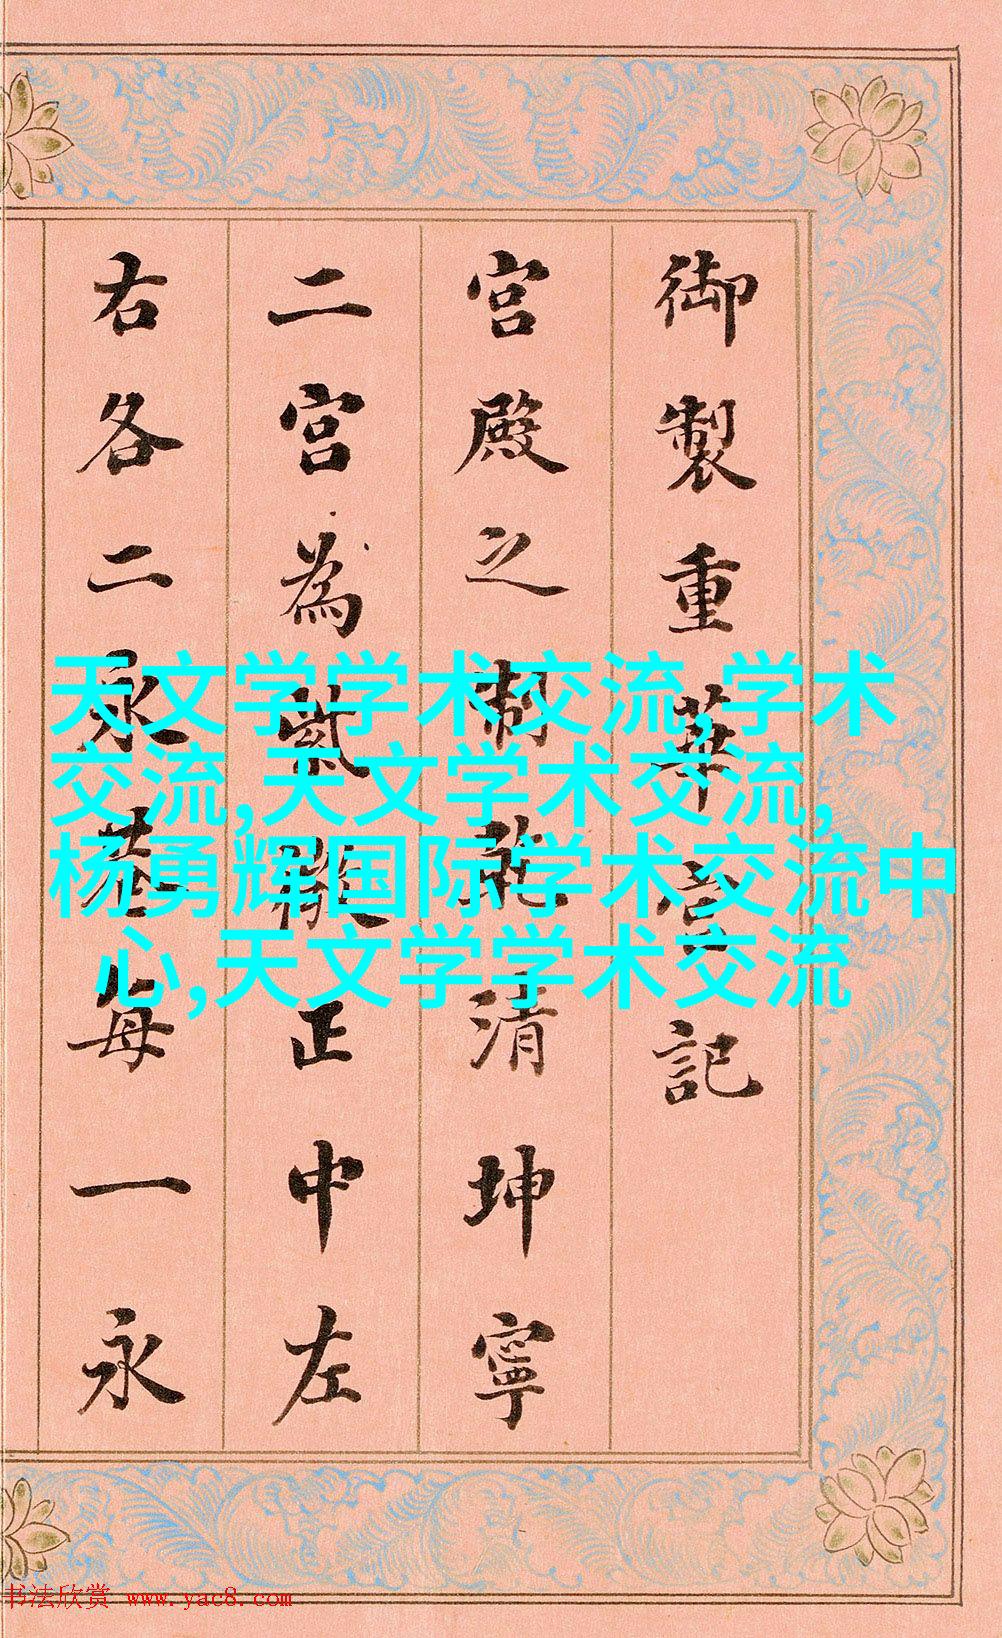 御製重華宮記
宮殿之制乾清坤寧
二宮為紫極正中左
右各二永巷每一永
天文学学术交流,学术
交流,天文学术交流,
杨勇辉国际学术交流中
心,天文学学术交流
书法欣赏 www.yac8.com